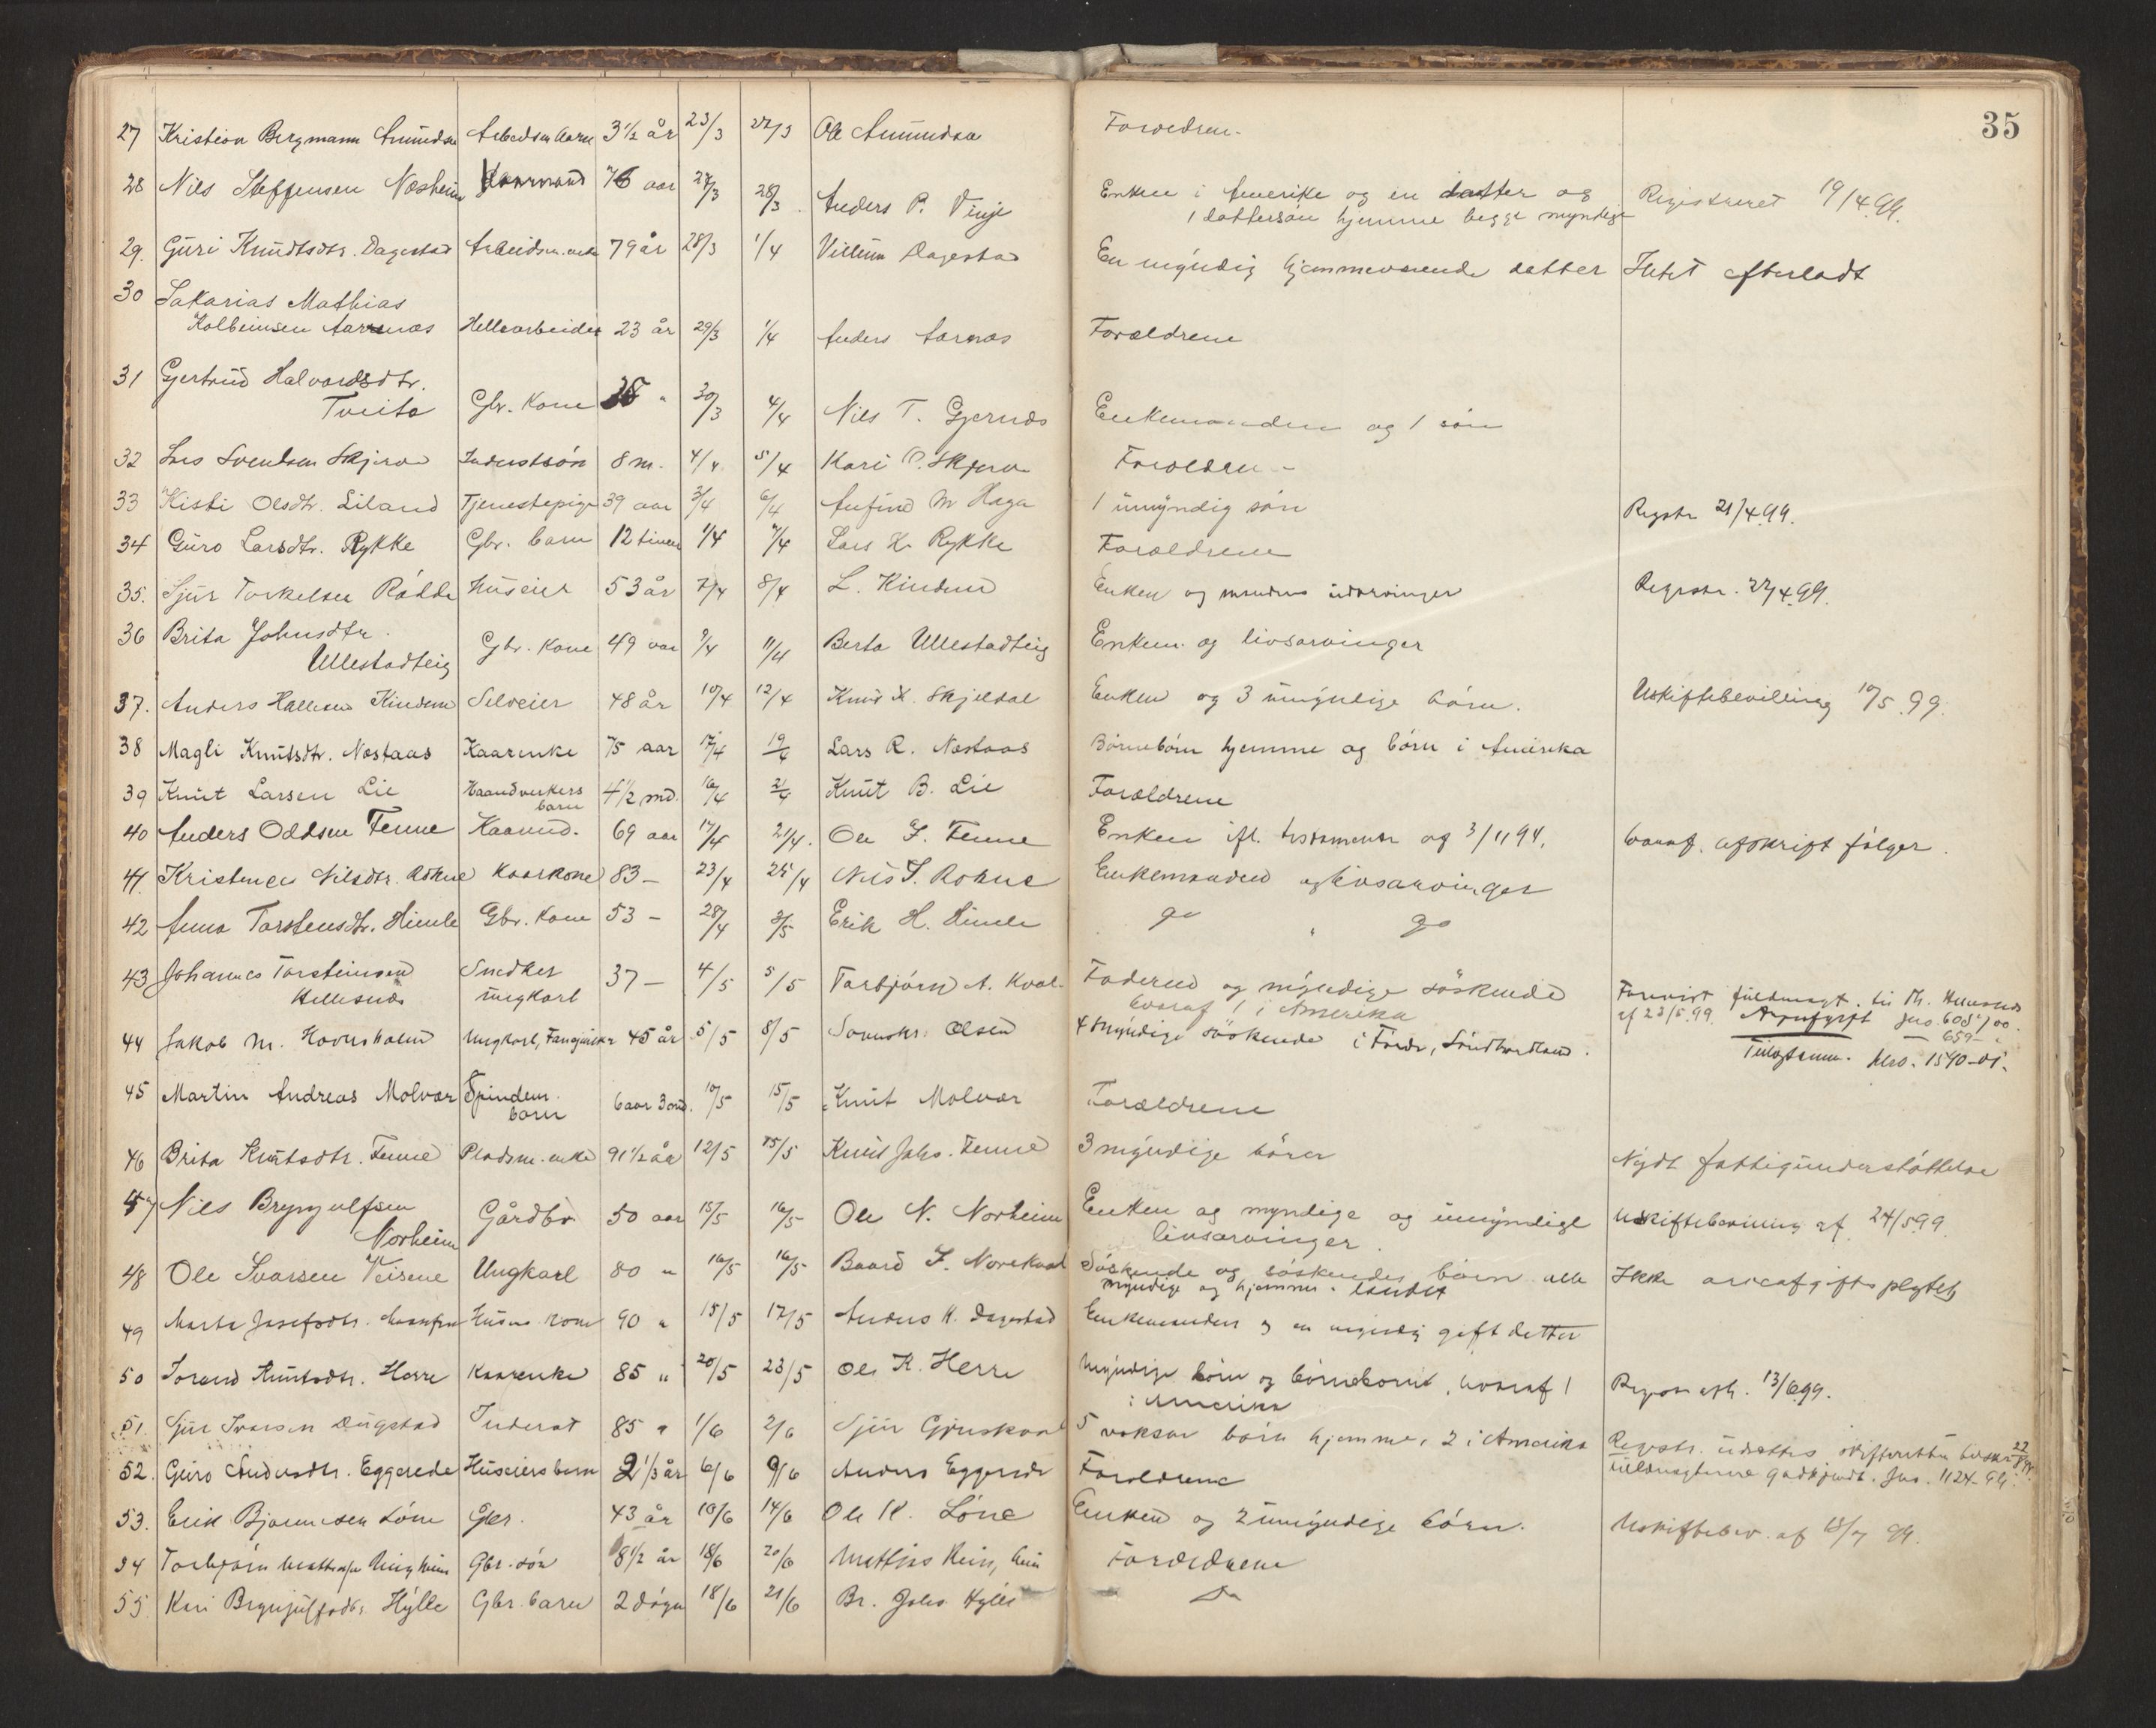 35
27 Kristian Bergmann Amundsen Arbeidsm. barn 3 1/2 år 23/3 27/3 Ole Amundsen Forældrene
28 Nils Steffensen Næsheim Kaarmand 76 aar 27/3 28/3 Anders P. Vinje Enken i Amerika og en datter og Registreret 19/4 99.
1 dattersøn hjemme begge myndige
29. Guri Knudtsdtr. Dagestad Arbeidsm. enke 79 år 28/3 1/4 Villum Dagestad En myndig hjemmeværende datter Intet efterladt
30 Sakarias Mathias
Kolbeinsen Aarmæs Hellearbeider 23 år 29/3 1/4 Anders Aarnæs Forældrene
31 Gjertrud Halvordsdtr.
Tveita Gbr. Kone 38 " 30/3 4/4 Nils T. Gjernæs Enkemanden og 1 søn
32 Lars Svendsen Skjerve Inderstsøn 8 m. 4/4 5/4 Kari P. Skjerve Forældren
33 Kisti Olsdtr. Liland Tjenestepige 39 aar 3/4 6/4 Anfind M Haga 1 umyndig søn Registr 21/4 99.
34 Guro Larsdtr. Rykke Gbr. barn 12 timer 1/4 7/4 Lars K. Rykke Forældrene
35. Sjur Torkelsen Rødde Huseier 53 år 7/4 8/4 L. Kindem Enken og mandens udarvinger Registr. 22/4 99.
36 Brita Johnsdtr.
Ullestadteig Gbr. Kone 49 aar 9/4 11/4 Berta Ullestadteig Enkem. og livsarvinger
37. Anders Hallesen Kindem Selveier 48 år 10/4 12/4 Knud K. Skjeldal Enken og 3 umyndige børn. Uskiftebevilling 10/5 99.
38 Magli Knutsdtr. Næstaas Kaarenke 75 aar 17/4 19/4 Lars R. Næstaas Børnebørn hjemme og børn i Amerika
39 Knut Larsen Lie Haandverkers barn 4 1/2 md. 16/4 21/4 Knut B. Lie Forældrene
40 Anders Oddsen Tenne Kaarmd. 69 aar 17/4 21/4. Ole J. Tenne Enken ifl. testamente og 3/11 94, hvoraf afskrift følger.
41. Kristense Nilsdtr. Rokne Kaarkone 83 – 23/4 25/4 Nils J. Rokne Enkemanden og livsarvinger
42 Anna Torsteinsdtr. Himle Gbr. Kone 53 – 28/4 3/5 Erik H. Himle do do
43 Johannes Torsteinsen Snedker
Hellesnæs ungkarl 37 – 4/5 5/5 Torbjørn A. Kval. Faderen og myndige søskende
hvoraf 1 i Amerika
44 Jakob M. Hovnsholm Ungkarl, 45 år 5/5 8/5 Olsen 4 myndige søskende i Førde, Søndhordland.
af 23/5 99. Jno. 605/00.
659 –
Jno. 1540–01.
45 Martin Andreas Molvær Spindem.
barn 6 aar 3 md. 10/5 15/5 Knut Molvær Forældrene
46 Brita Knutsdtr. Tenne Pladsm. enke 91 1/2 år 12/5 15/5 Knut Johs. Tenne 3 myndige børn Nydt fattigunderstøttelse
47 Nils Brynjulfsen
Norheim Gårdbr 50 aar 15/5 16/5 Ole N. Norheim Enken og myndige og umyndige Uskiftebevilling af 24/5 99
livsarvinger.
48 Ole Ivarsen Veisene Ungkarl 80 " 16/5 16/5 Baard J. Norekval Søskende og søskendes børn alle Ikke arveafgiftspligtig
myndige og hjemme i landet
49 Marta Josefsdtr. Husm. kone 90 " 15/5 17/5 Anders K. Dagestad Enkemanden og en myndig gift datter
50 Jorand Knutsdtr. Herre Kaarenke 85 " 20/5 23/5 Ole K. Herre Myndige børn og børnebørn, hvoraf 1 13/6 99.
i Amerika
51. Sjur Ivarsen Dugstad Inderst 85 " 1/6 2/6 Sjur Grøuskval 5 voksne børn hjemme, 2 i Amerika Registr. udsættes
52. Guro Andersdtr. Eggerede Huseiersbarn 2 1/3 år 6/6 9/6 Anders Eggerede Forældrene Jno. 1124–99.
53. Erik Bjørnesen Løne Gbr. 43 år 10/6 14/6 Ole K. Løne Enken og 2 umyndige børn. Uskiftebev. af 18/7 99.
54 Torbjørn Gbr. søn 8 1/2 år 18/6 20/6 Forældrene
55 Kari Brynjulfsdtr. Hylle Gbr. barn 2 døgn 18/6 21/6 Br. Johs Hylle Do